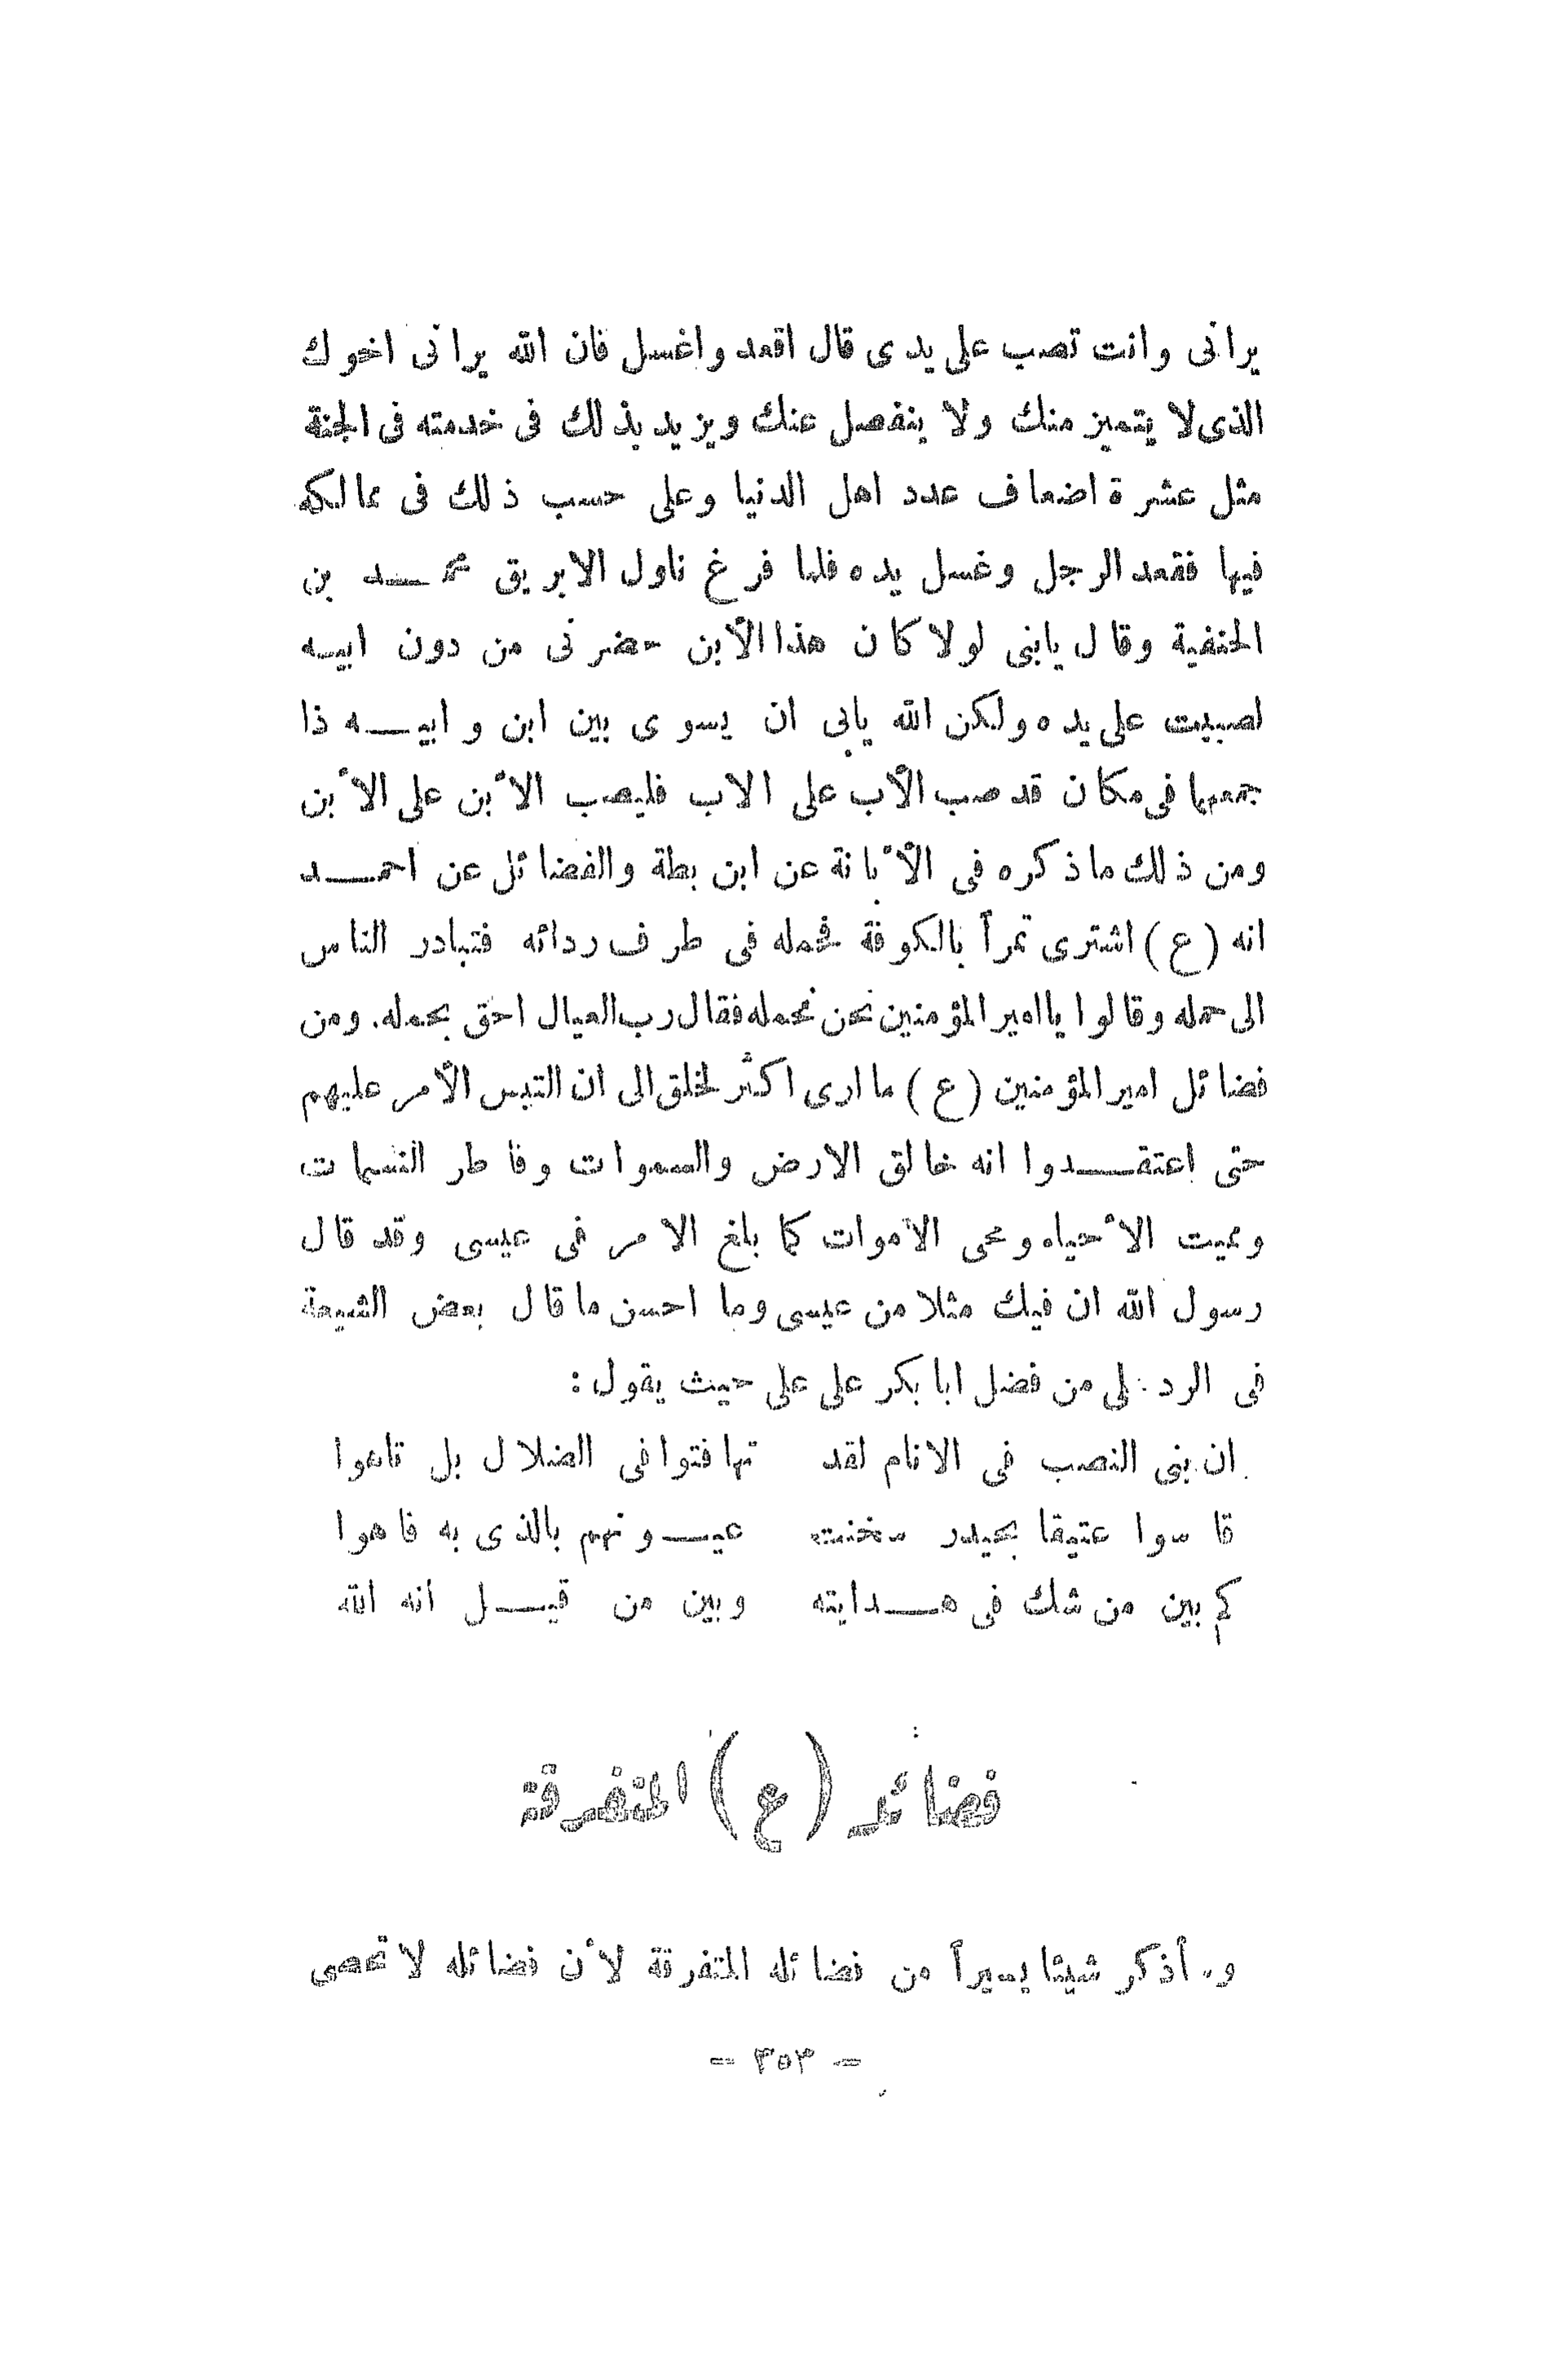 يرانى وانت تصب على يدى قال اقعد واغسل فان الله يرانى اخوك
الذى لا يتميز منك ولا ينفصل عنك ويزيد بذلك فى خدمته فى الجنة
مثل عشرة اضعاف عدد اهل الدنيا وعلى حسب ذلك فى ممالكه
فيها فقعد الرجل وغسل يده فلما فرغ ناول الابريق محمد بن
الحنفية وقال يابنى لولا كان هذا الأبن حضرنى من دون ابيه
لصببت على يده ولكن الله يابى ان يسوى بين ابن وابيه ذا
جمعهما فى مكان قد صب الأب على الاب فليصب الأبن على الأبن
ومن ذلك ما ذكره فى الأبانة عن ابن بطة والفضائل عن احمد
انه (ع) اشترى تمرأ بالكوفة فحمله فى طرف ردائه فتبادر الناس
الى حمله وقالوا يا امير المؤمنين نحن نحمله فقال رب العيال احق بحمله. ومن
فضائل امير المؤمنين (ع) ما ارى اكثر لخلق الى ان التبس الأمر عليهم
حتى اعتقدوا انه خالق الارض والسموات وفاطر النسمات
ومميت الأحياء ومحى الأموات كما بلغ الامر فى عيسى وقد قال
رسول الله ان فيك مثلا من عيسى وما احسن ما قال بعض الشيعة
فى الرد لى من فضل ابا بكر على على حيث يقول :
ان بنى النصب فى الانام لقد تهافتوا فى الضلال بل تاهوا
قاسوا عتيقا بحيدر سخنت عيونهم بالذى به فاهوا
كم بين من شك فى هدايته وبين من قيل انه الله
فضائله (ع) المتفرقة
أذكر شيئا يسيرأ من فضائله المتفرقة لأن فضائله لا تحصى
- ٣٥٣ -